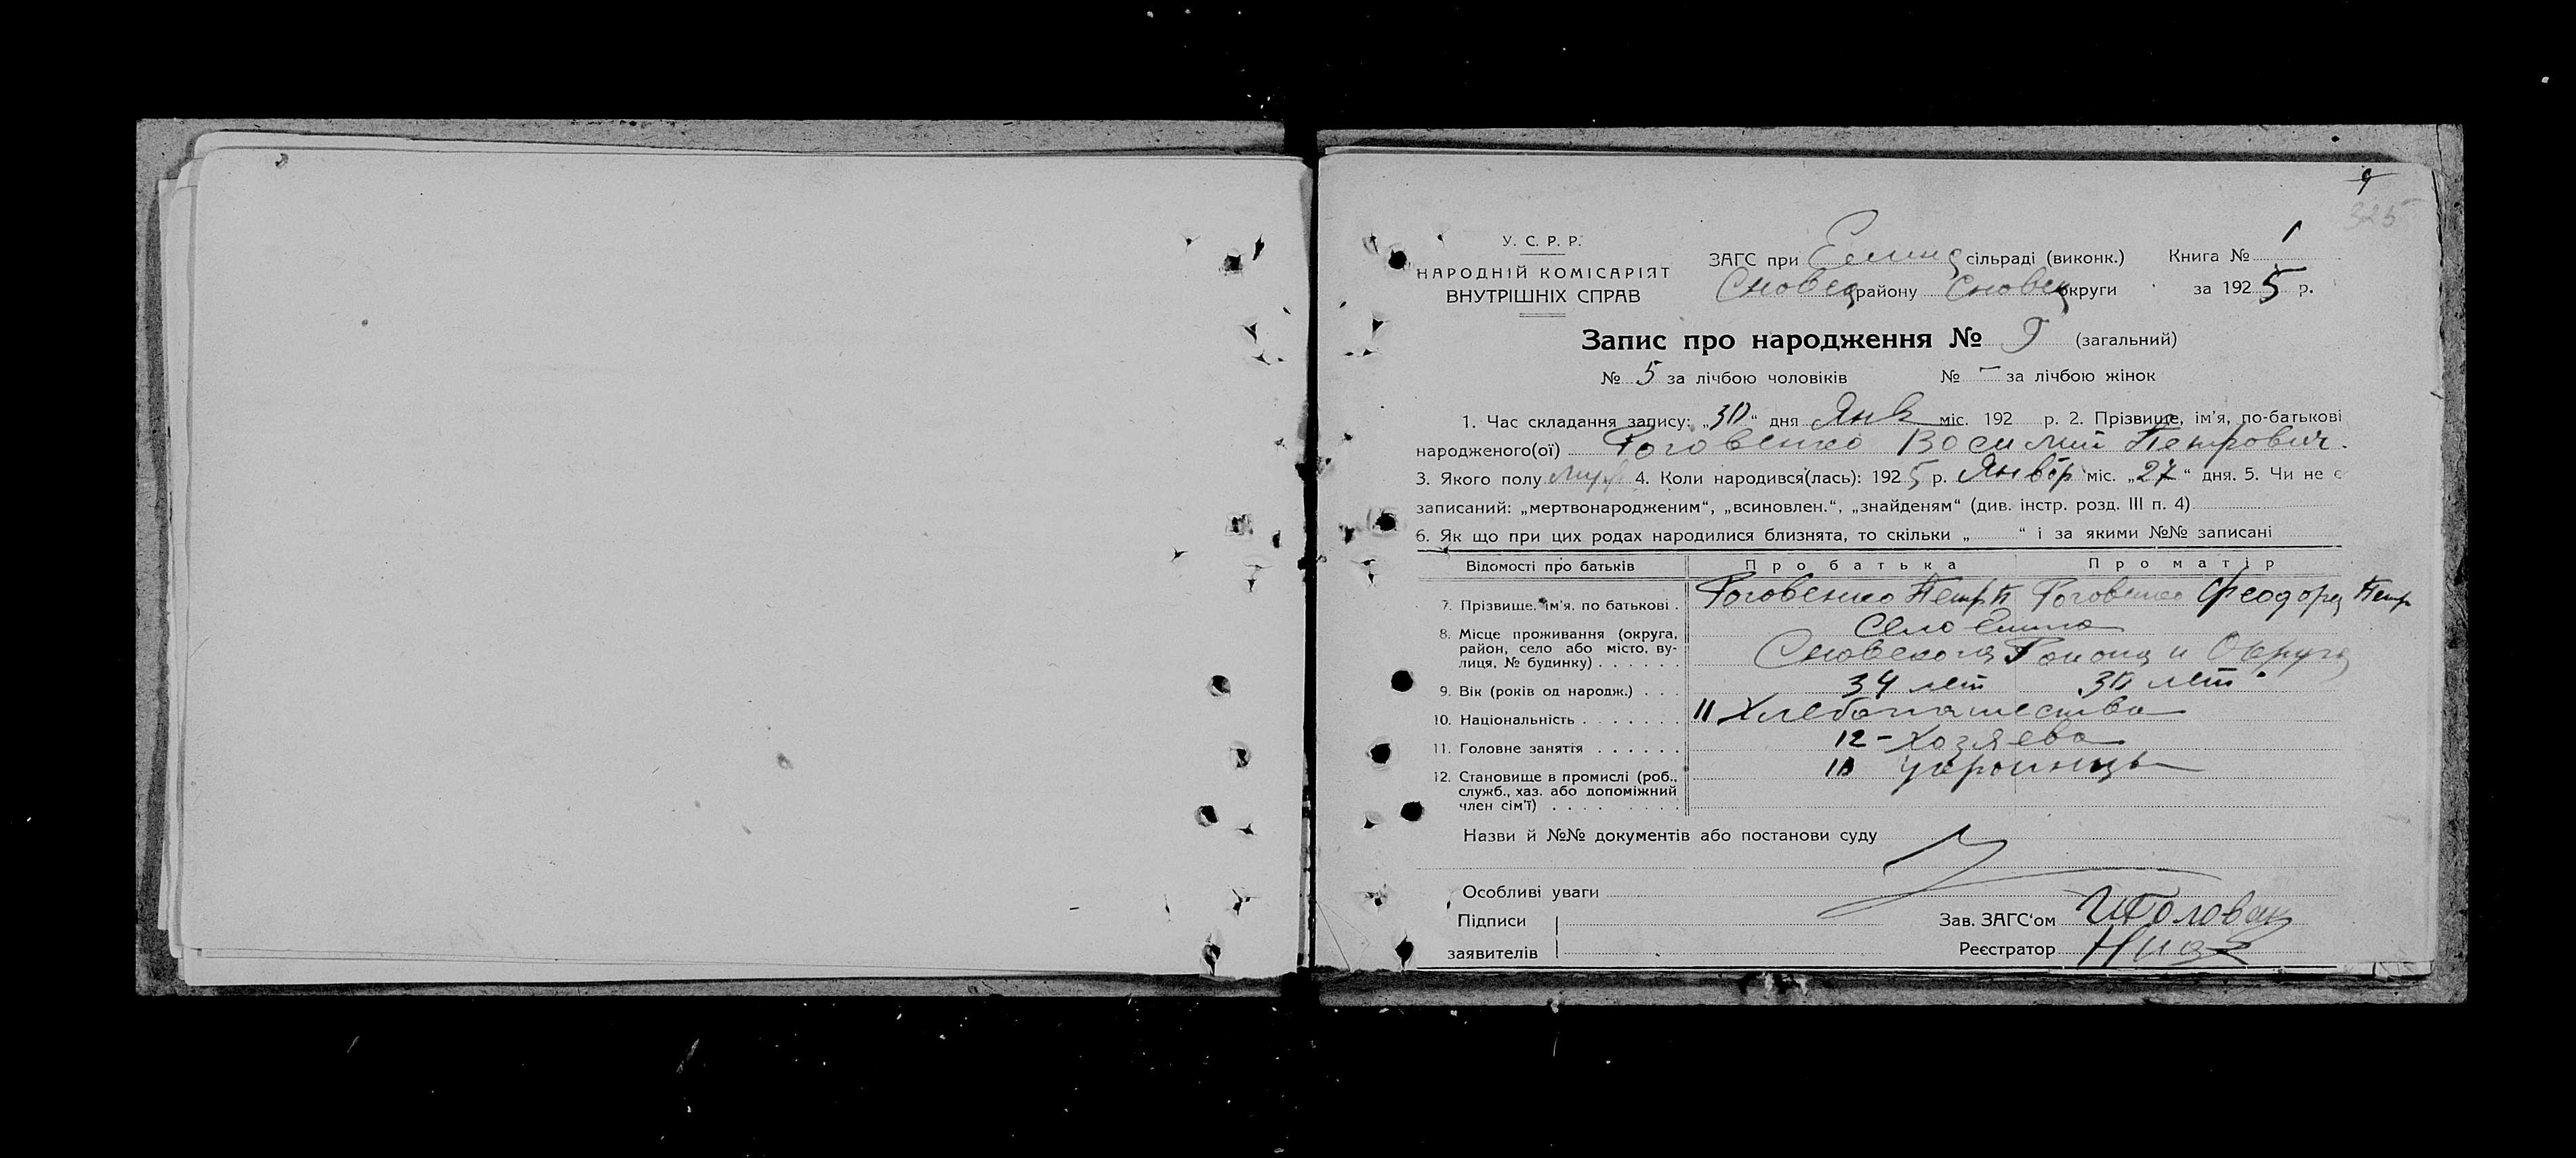 9
325
У. С. Р. Р.
НАРОДНІЙ КОМІСАРІЯТ
ВНУТРІШНІХ СПРАВ
ЗАГС при Елинс сільраді (виконк.) Книга № 1
Сновск району Сновск округи за 1925 р.
Запис про народження № 9 (загальний)
№ 5 за лічбою чоловіків № – за лічбою жінок
1. Час складання запису: „30“ дня Янв міс. 192 р. 2. Прізвище, ім'я, по-батькові
народженого(ої) Роговенко Василий Петрович.
3. Якого полу муж 4. Коли народився(лась): 1925 р. Январ міс. „27“ дня. 5. Чи не є
записаний: „мертвонародженим“, „всиновлен.“, „знайденям“ (див. інстр. розд. III п. 4)
6. Як що при цих родах народилися близнята, то скільки „ “ і за якими №№ записані
Відомості про батьків Про батька Про матір
7. Прізвище, ім'я. по батькові . Роговенко Петр П Роговенко Феодора Петр
8. Місце проживання (округа, район, село або місто, вулиця, № будинку) . . . . . . Село Елино
Сновского Района и Округа
9. Вік (років од народж.) . . . 34 лет 30 лет.
10. Національність . . . . . . . 11 Хлебопашества
11. Головне заняття . . . . . . 12 - Хозяева
12. Становище в промислі (роб., 10 украинцы
служб., хаз. або допоміжний
член сім'ї) . . . . . . . .
Назви й №№ документів або постанови суду
Особливі уваги
Підписи
заявителів
Зав. ЗАГС'ом Головач
Реєстратор